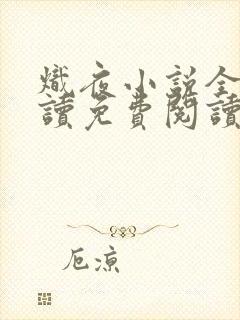 熾夜小說全
讀免費閱讀
厄涼